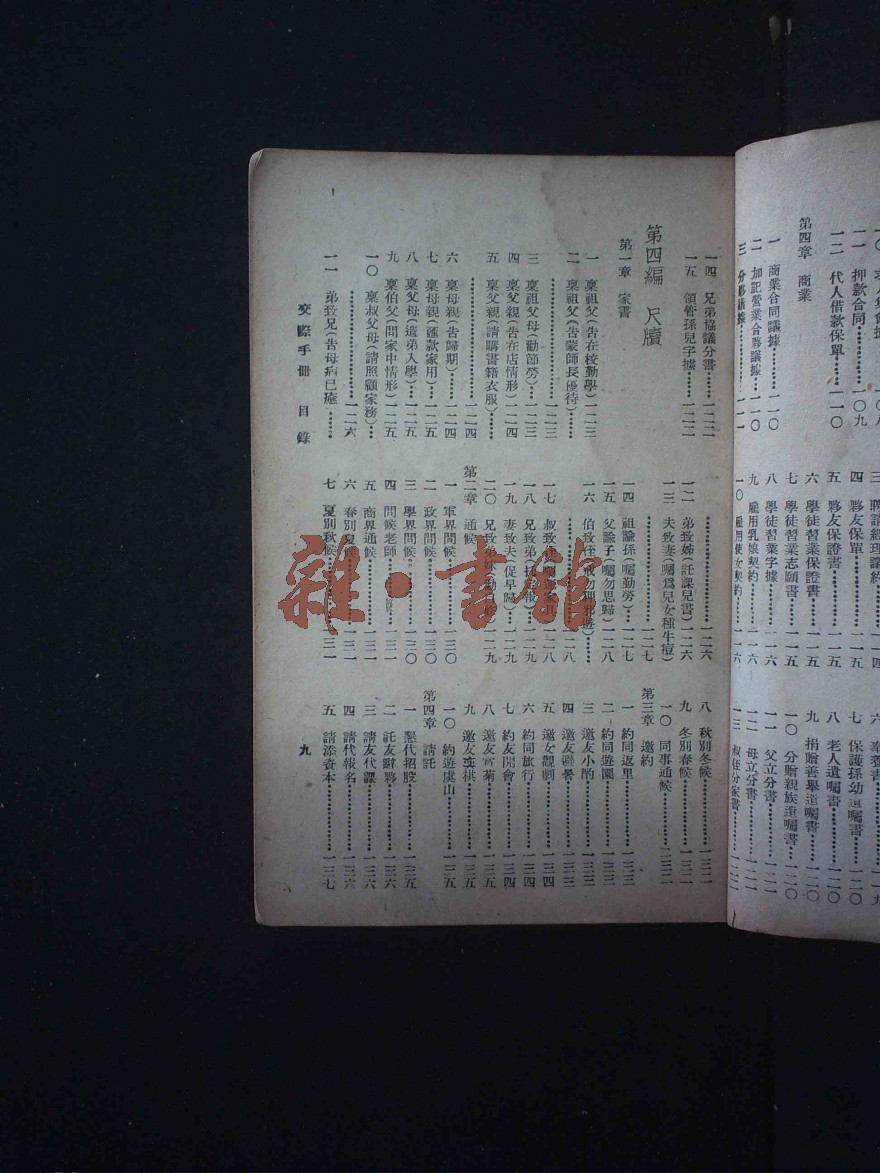 一一 押款合同……一〇九
一二 代人借款保單……一一〇
第四章 商業
一 商業合同議據……一一〇
二 加記營業合夥議據……一一〇
三 分夥議據……一一一
三 聘請經理議約……一一四
四 夥友保單……一一四
五 夥友保證書……一一五
六 學徒習業保證書……一一五
七 學徒習業志願書……一一五
八 學徒習業字據……一一六
九 雇用乳娘契約……一一六
一〇 雇用使女契約……一一六
六 奉養書……一一九
七 保護孫幼遺囑書……一二〇
八 老人遺囑書……一二〇
九 捐贈善舉遺囑書……一二〇
一〇 分贈親族遺囑書……一二〇
一一 父立分書……一二一
一二 母立分書……一二一
一三 叔侄分家書……一二二
一四 兄弟協議分書……一二二
一五 領管孫兒字據……一二二
第四編 尺牘
第一章 家書
一 稟祖父(告在校勤學)一二三
二 稟祖父(告蒙師長優待)
……一二三
三 稟祖父母(勸節勞)……一二三
四 稟父親(告在店情形)一二四
五 稟父親(請購書籍衣服)
……一二四
六 稟母親(告歸期)……一二四
七 稟母親(匯款家用)……一二五
八 稟父母(遣弟入學)……一二五
九 稟伯父(問家中情形)一二五
一〇 稟叔父母(請照顧家務)
……一二六
一一 弟致兄(告母病已癒)
……一二六
一二 弟致姊(託課兒書)一二六
一三 夫致妻(囑爲兒女種牛痘)
……一二七
一四 祖諭孫(囑勤勞)……一二七
一五 父諭子(囑勿思歸)一二八
一六 伯致侄(戒勿狎邪遊)
……一二八
一七 叔致侄……一二八
一八 兄致弟……一二九
一九 妻致夫(促早歸)……一二九
二〇 兄致弟妹……一二九
第二章 通候
一 軍界問候……一三〇
二 政界問候……一三〇
三 學界問候……一三〇
四 問候老師……一三一
五 商界通候……一三一
六 春別夏候……一三一
七 夏別秋候……一三一
八 秋別冬候……一三二
九 冬別春候……一三二
一〇 同事通候……一三二
第三章 邀約
一 約同返里……一三三
二 約同遊園……一三三
三 邀友小酌……一三三
四 邀友避暑……一三三
五 邀女觀劇……一三四
六 約同旅行……一三四
七 約友開會……一三四
八 邀友賞菊……一三五
九 邀友奕棋……一三五
一〇 約遊虞山……一三五
第四章 請託
一 懇代招股……一三五
二 託友辭夥……一三六
三 請友代課……一三六
四 請代報名……一三六
五 請添資本……一三七
交際手冊 目錄
九
雜·書館